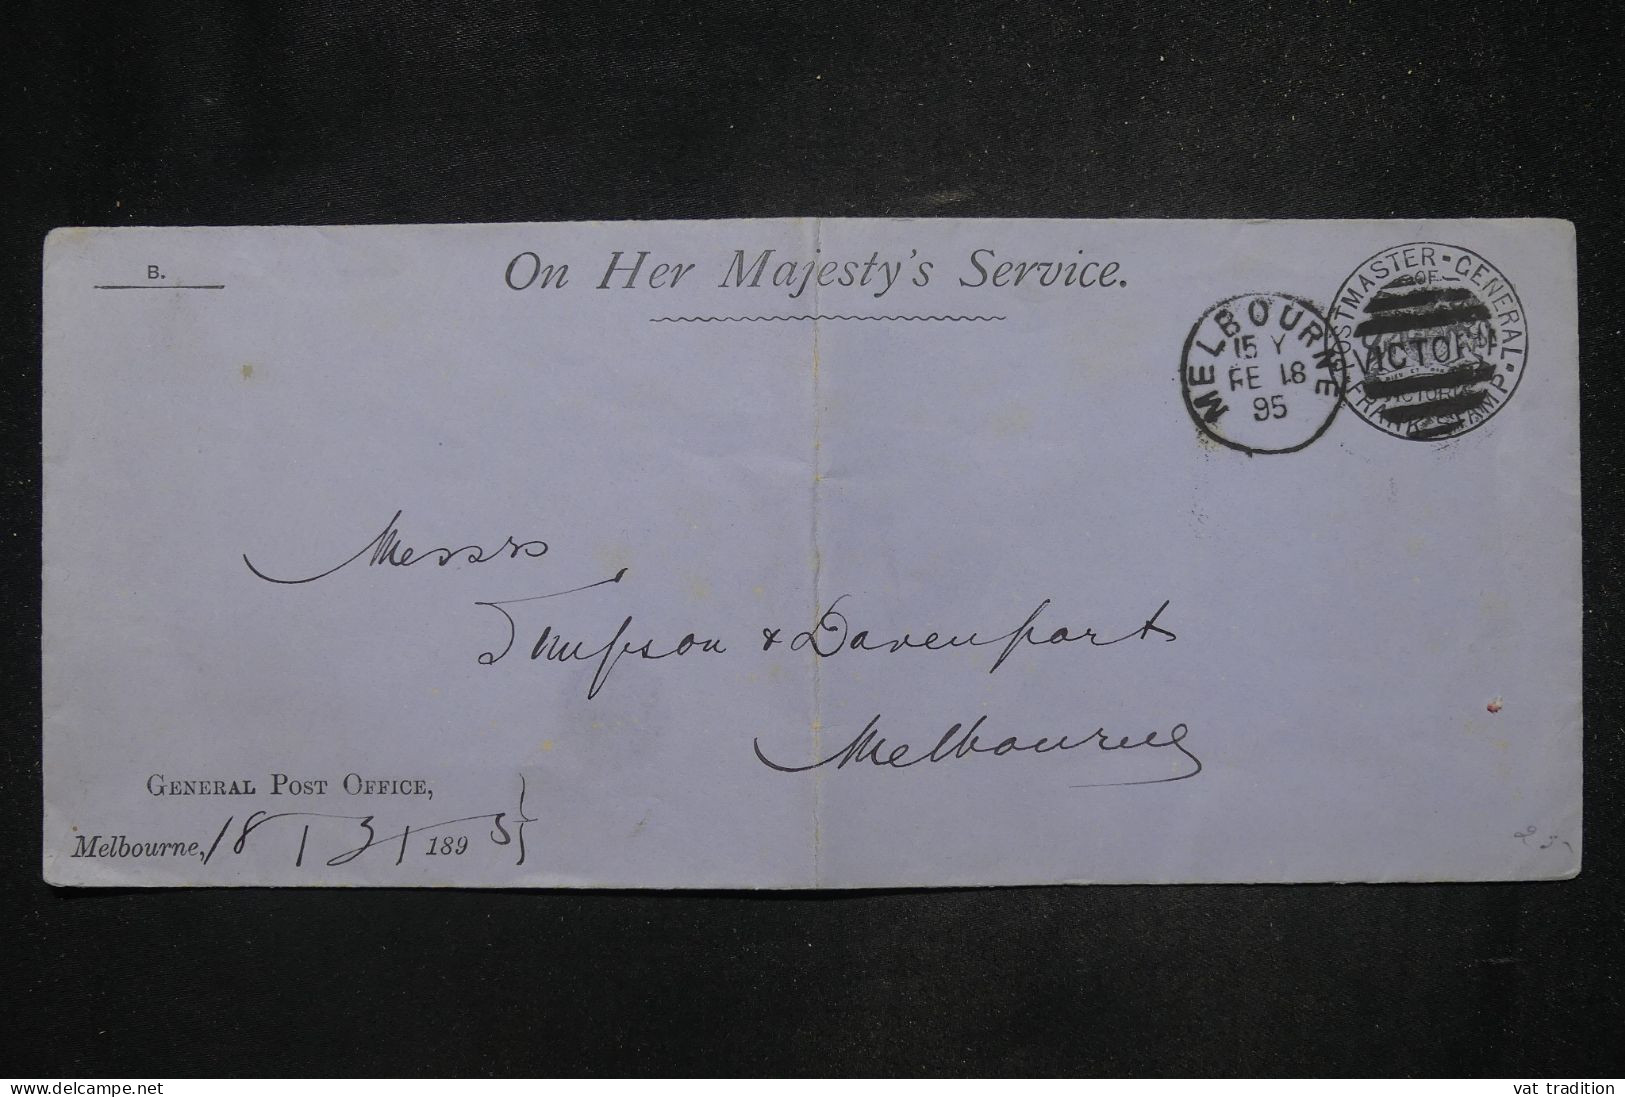 B.
On Her Majesty's Service.
MELBOURNE
15 Y
FE 18
95
POSTMASTER-GENERAL
OF
VICTORIA
VICTORIA
FRANK STAMP
Messrs
Simpson & Davenport
Melbourne
GENERAL POST OFFICE,
Melbourne, 18/3/1895
delcampe.net
vat_tradition